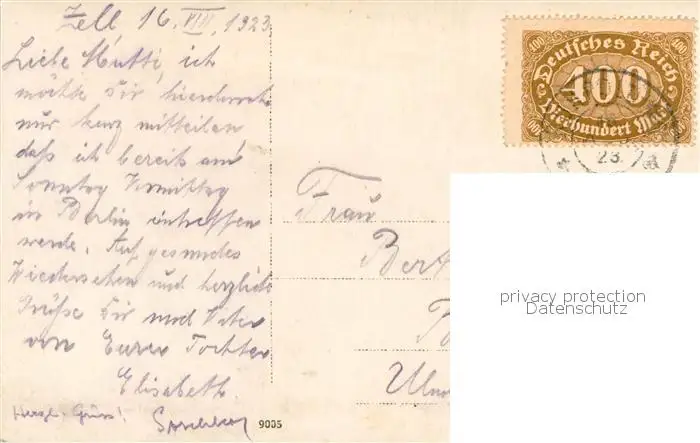 Zell, 16. VIII. 1923
Liebe Mutti, ich
möchte Dir hierdurch
nur kurz mitteilen
daß ich bereits am
Sonntag Vormittag
in Berlin eintreffen
werde. Auf gesundes
Wiedersehen und herzliche
Grüße Dir und Vater
von Eurer Tochter
Elisabeth.
Herzl. Gruss!
9005
Deutsches Reich
400 400
400
Vierhundert Mark
400 400
23.
Frau
Bert
privacy protection
Datenschutz